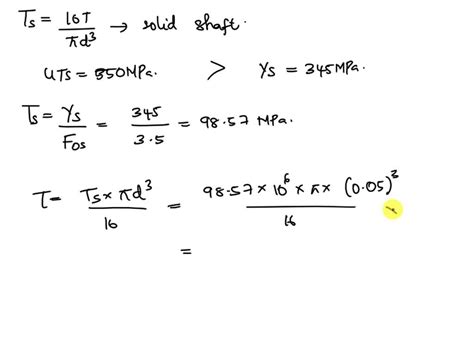 Ts = 16T / πd³ → solid shaft.
UTS = 550MPa. > Ys = 345MPa.
Ts = Ys / Fos = 345 / 3.5 = 98.57 MPa.
T = Ts × πd³ / 16 = 98.57 × 10⁶ × π × (0.05)³ / 16
=